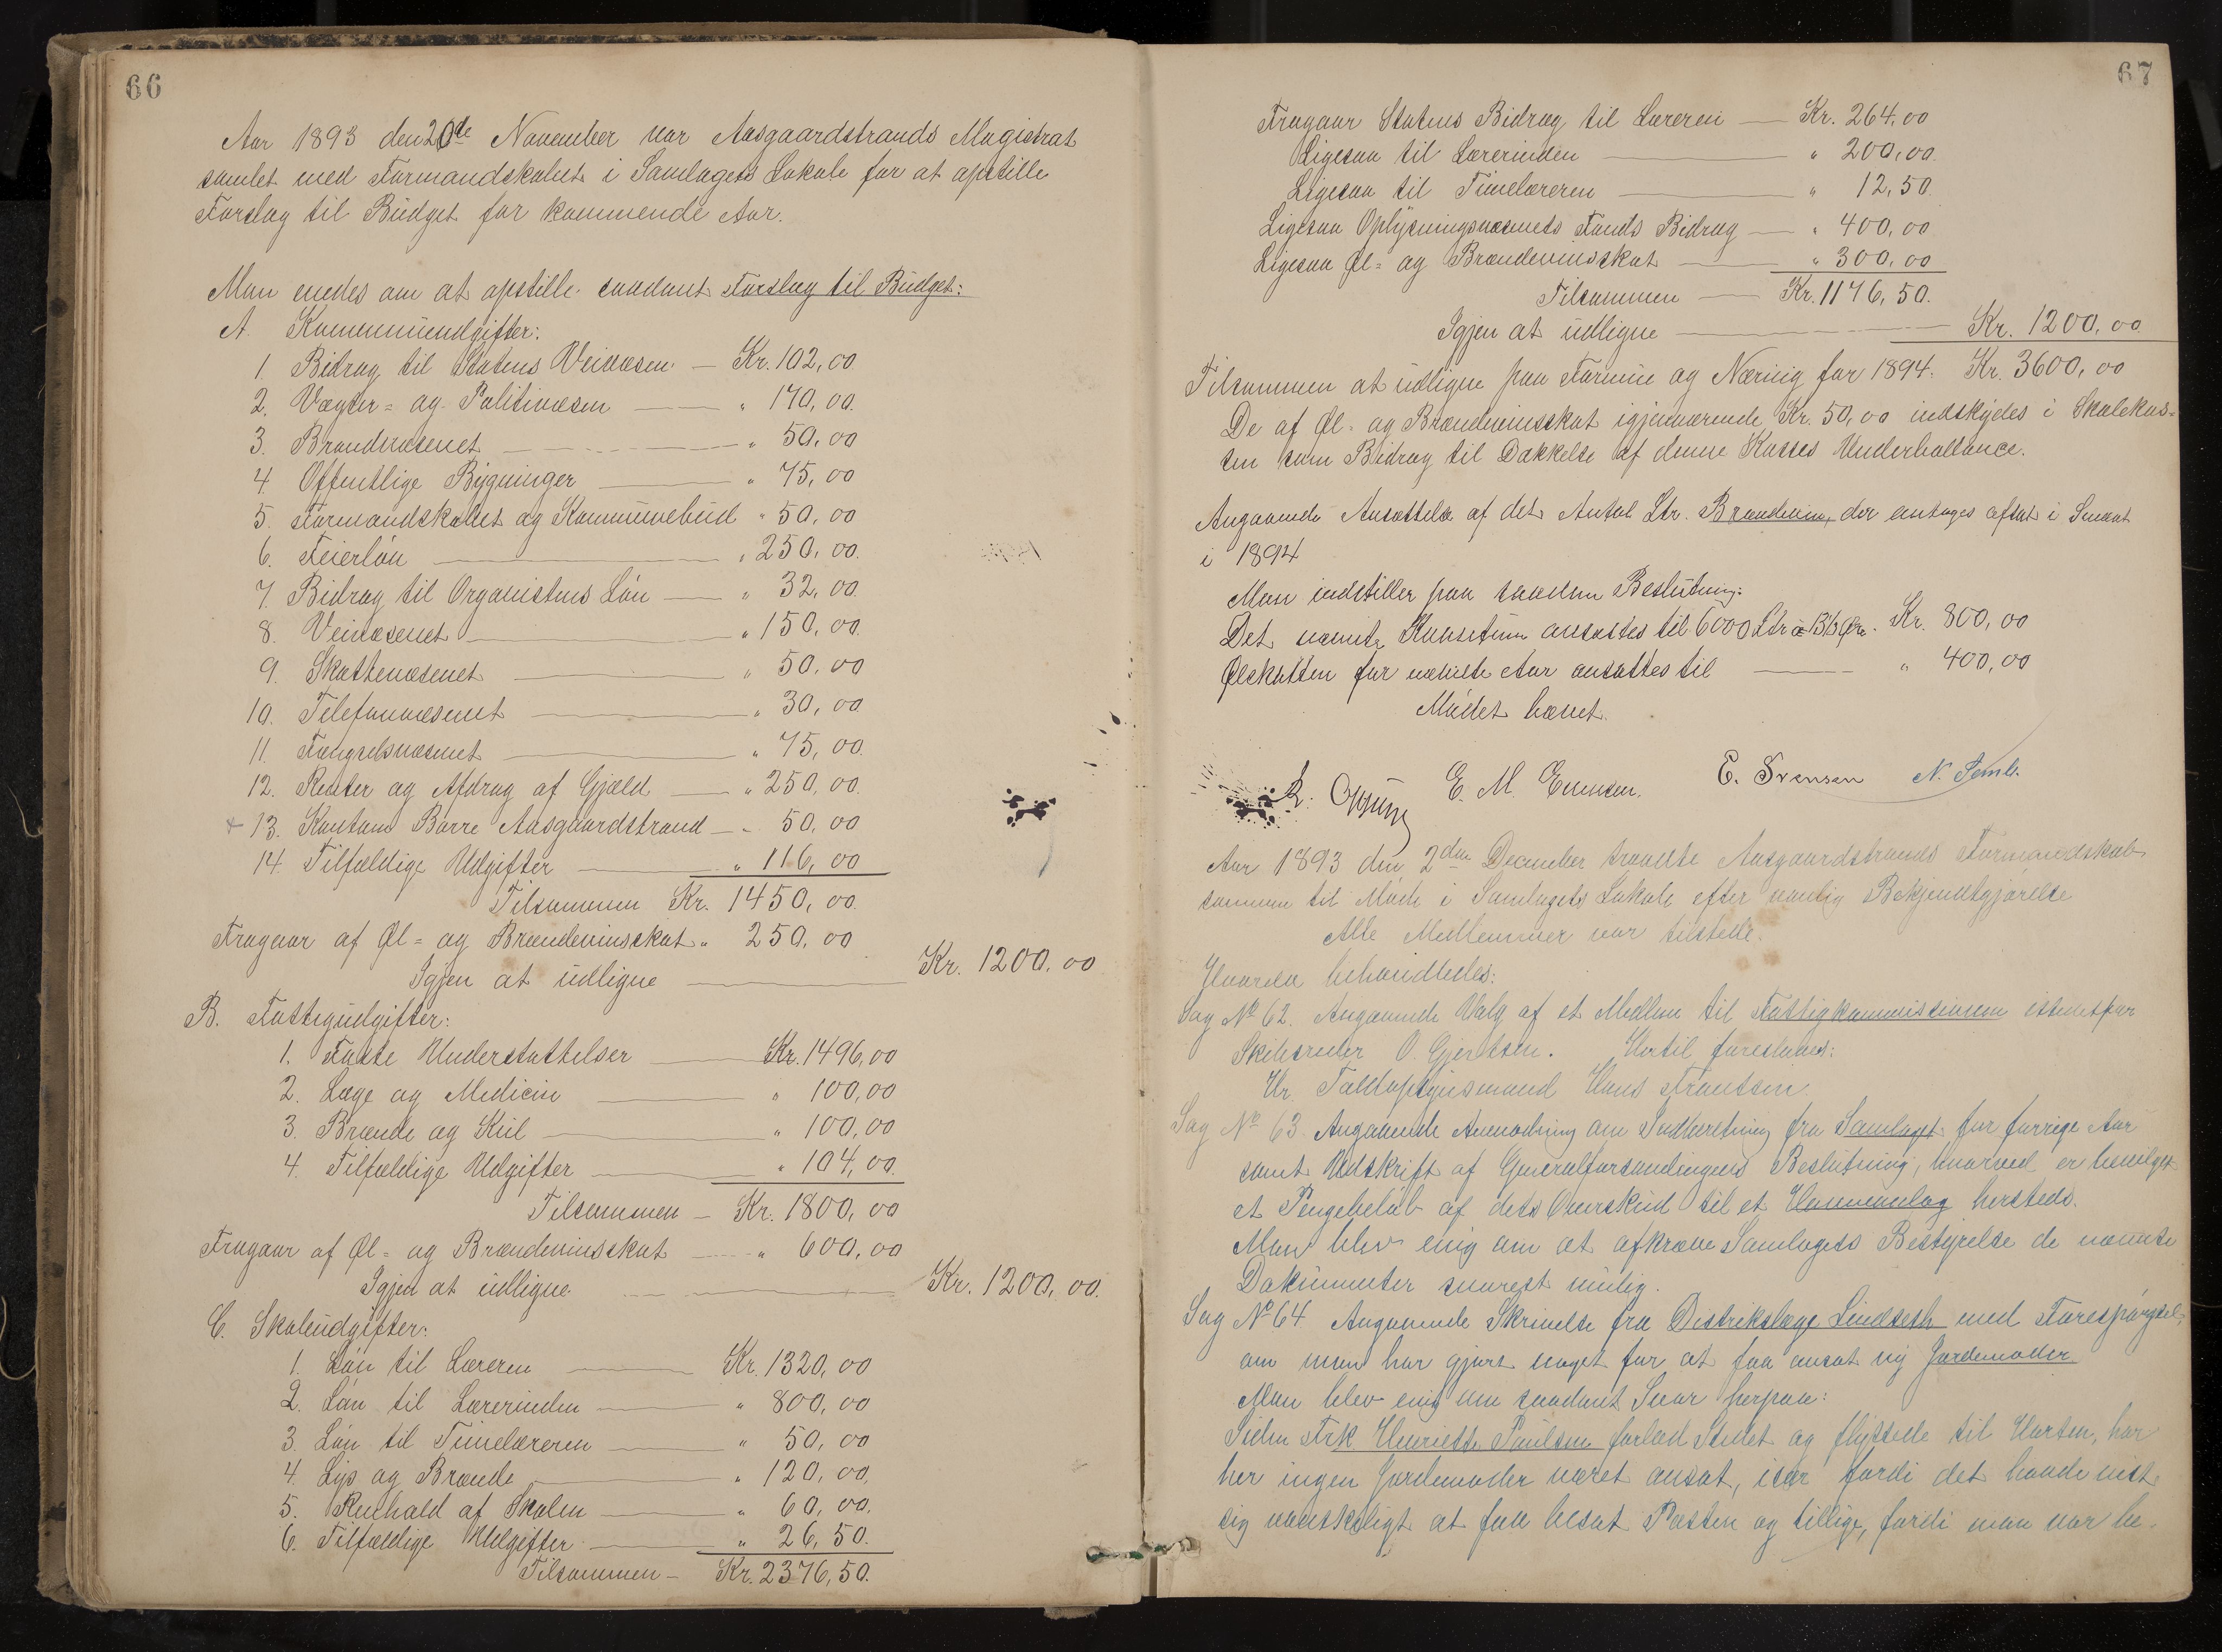 66
Aar 1893 den 20de November var Aasgaardstrands Magistrat
samlet med Formandskabet i Samlagets Lokale for at opstille
Forslag til Budget for kommende Aar.
Man enedes om at opstille saadant Forslag til Budget:
A. Kommuneudgifter:
1. Bidrag til Statens Veivæsen — Kr. 102,00
2. Vægter- og Politivæsen — " 170,00
3. Brandvæsenet — " 50,00
4. Offentlige Bygninger — " 75,00
5. Formandskabet og Kommunebud " 50,00
6. Feierløn — " 250,00.
7. Bidrag til Organistens Løn — " 32,00
8. Veivæsenet — " 150,00
9. Skattevæsenet — " 50,00
10. Telefonvæsenet — " 30,00
11. Fængselsvæsenet — " 75,00.
12. Renter og Afdrag af Gjæld — " 250,00.
+ 13. Kontom Borre Aasgaardstrand — " 50,00
14. Tilfældige Udgifter — " 116,00
Tilsammen Kr. 1450,00.
Fragaar af Øl- og Brændevinsskat " 250,00
Igjen at udligne — Kr. 1200,00
B. Fattigudgifter:
1. Faste Understøttelser — Kr. 1496,00
2. Læge og Medicin — " 100,00
3. Brænde og Kul — " 100,00
4. Tilfældige Udgifter — " 104,00.
Tilsammen — Kr. 1800,00
Fragaar af Øl- og Brændevinsskat — " 600,00
Igjen at udligne — Kr. 1200,00.
C. Skoleudgifter:
1. Løn til Læreren — Kr. 1320,00
2. Løn til Lærerinden — " 800,00
3. Løn til Timelæreren — " 50,00
4. Lys og Brænde — " 120,00.
5. Renhold af Skolen — " 60,00.
6. Tilfældige Udgifter — " 26,50.
Tilsammen — Kr. 2376,50.
67
Fragaar Statens Bidrag til Læreren — Kr. 264,00
Ligesaa til Lærerinden — " 200,00.
Ligesaa til Timelæreren — " 12,50.
Ligesaa Oplysningsvæsenets Fonds Bidrag — " 400,00
Ligesaa Øl- og Brændevinsskat — " 300,00
Tilsammen — Kr. 1176,50.
Igjen at udligne — Kr. 1200,00
Tilsammen at udligne paa Formue og Næring for 1894. Kr. 3600,00
De af Øl- og Brændevinsskat igjenværende Kr. 50,00 indskydes i Skolekas-
sen som Bidrag til Dækkelse af denne Kasses Underballance.
Angaaende Ansættelse af det Antal Ltr. Brændevin, der antages afsat i
i 1894
Man indstiller paa saadan Beslutning:
Det nævnte Kvantum ansættes til 6000 Ltr à 13 1/3 Øre. Kr. 800,00
Ølskatten for nævnte Aar ansættes til — " 400,00
Mødet hævet.
E. M. Evensen. E. Svensen N. Semb.
Aar 1893 den 2den December traadte Aasgaardstrands Formandskab
sammen til Møde i Samlagets Lokale efter vanlig Bekjendtgjørelse
Alle Medlemmer var tilstede.
Hvorda behandledes:
Sag No 62. Angaaende Valg af et Medlem til Fattigkommissionen istedetfor
Skibsreder O. Gjertsen. Hertil foresloges:
Hr. Toldopsynsmand Hans Frantsen.
Sag No 63. Angaaende Anmodning om Indberetning fra Samlaget for forrige Aar
samt Udskrift af Generalforsamlingens Beslutning, hvorved er bevilget
et Pengebeløb af dets Overskud til et Havneanlæg hersteds.
Man blev enig om at afkræve Samlagets Bestyrelse de nævnte
Dokumenter snarest mulig.
Sag No 64 Angaaende Skrivelse fra Distrikslæge Lindseth med Forespørgsel,
om man har gjort noget for at faa ansat ny Jordemoder
Man blev enig om saadant Svar herpaa:
Siden Frk Henriette Paulsen forlod Stedet og flyttede til Horten, har
her ingen Jordemoder været ansat, især fordi det havde vist
sig vanskeligt at faa besat Posten og tillige, fordi man var be-